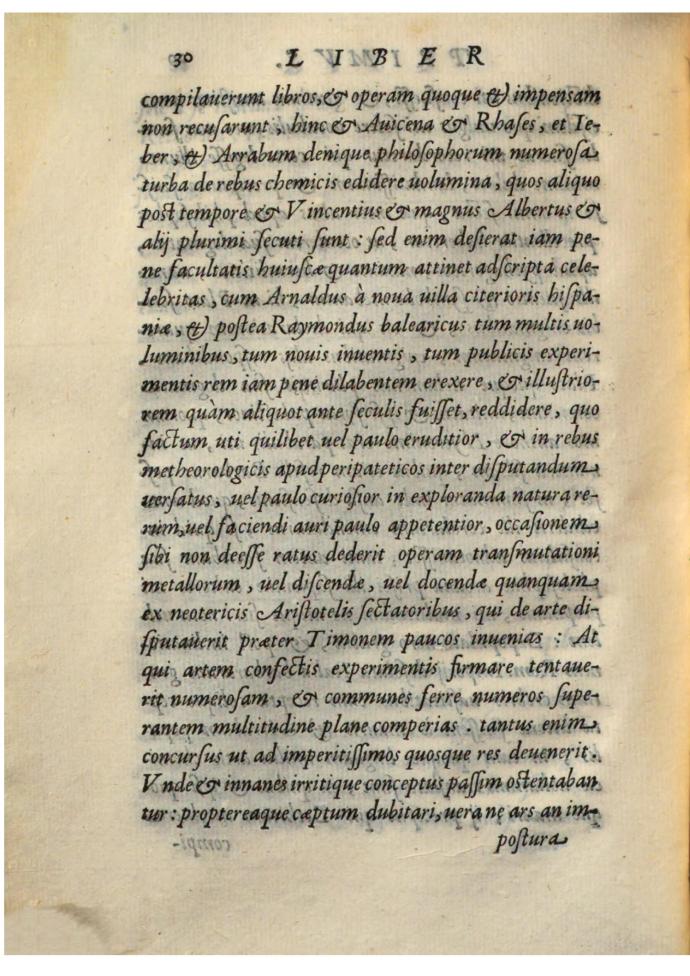 30 LIBER
compilauerunt libros, & operam quoque & impensam
non recusarunt, hinc & Auicena & Rhases, et Ie-
ber, & Arrabum denique philosophorum numerosa
turba de rebus chemicis edidere uolumina, quos aliquo
post tempore & Vincentius & magnus Albertus &
alij plurimi secuti sunt : sed enim desierat iam pe-
ne facultatis huiuscæ quantum attinet adscripta cele-
lebritas, cum Arnaldus à noua uilla citerioris hispa-
niæ, & postea Raymondus balearicus tum multis uo-
luminibus, tum nouis inuentis, tum publicis experi-
mentis rem iam pene dilabentem erexere, & illustrio-
rem quàm aliquot ante seculis fuisset, reddidere, quo
factum uti quilibet uel paulo eruditior, & in rebus
metheorologicis apud peripateticos inter disputandum
uersatus, uel paulo curiosior in exploranda natura re-
rum, uel faciendi auri paulo appetentior, occasionem
sibi non deesse ratus dederit operam transmutationi
metallorum, uel discendæ, uel docendæ quanquam
ex neotericis Aristotelis sectatoribus, qui de arte di-
sputauerit præter Timonem paucos inuenias : At
qui artem confectis experimentis firmare tentaue-
rit numerosam, & communes ferre numeros supe-
rantem multitudine plane comperias. tantus enim
concursus ut ad imperitissimos quosque res deuenerit.
Vnde & innanes irritique conceptus passim ostentaban
tur : proptereaque cæptum dubitari, uera ne ars an im-
postura